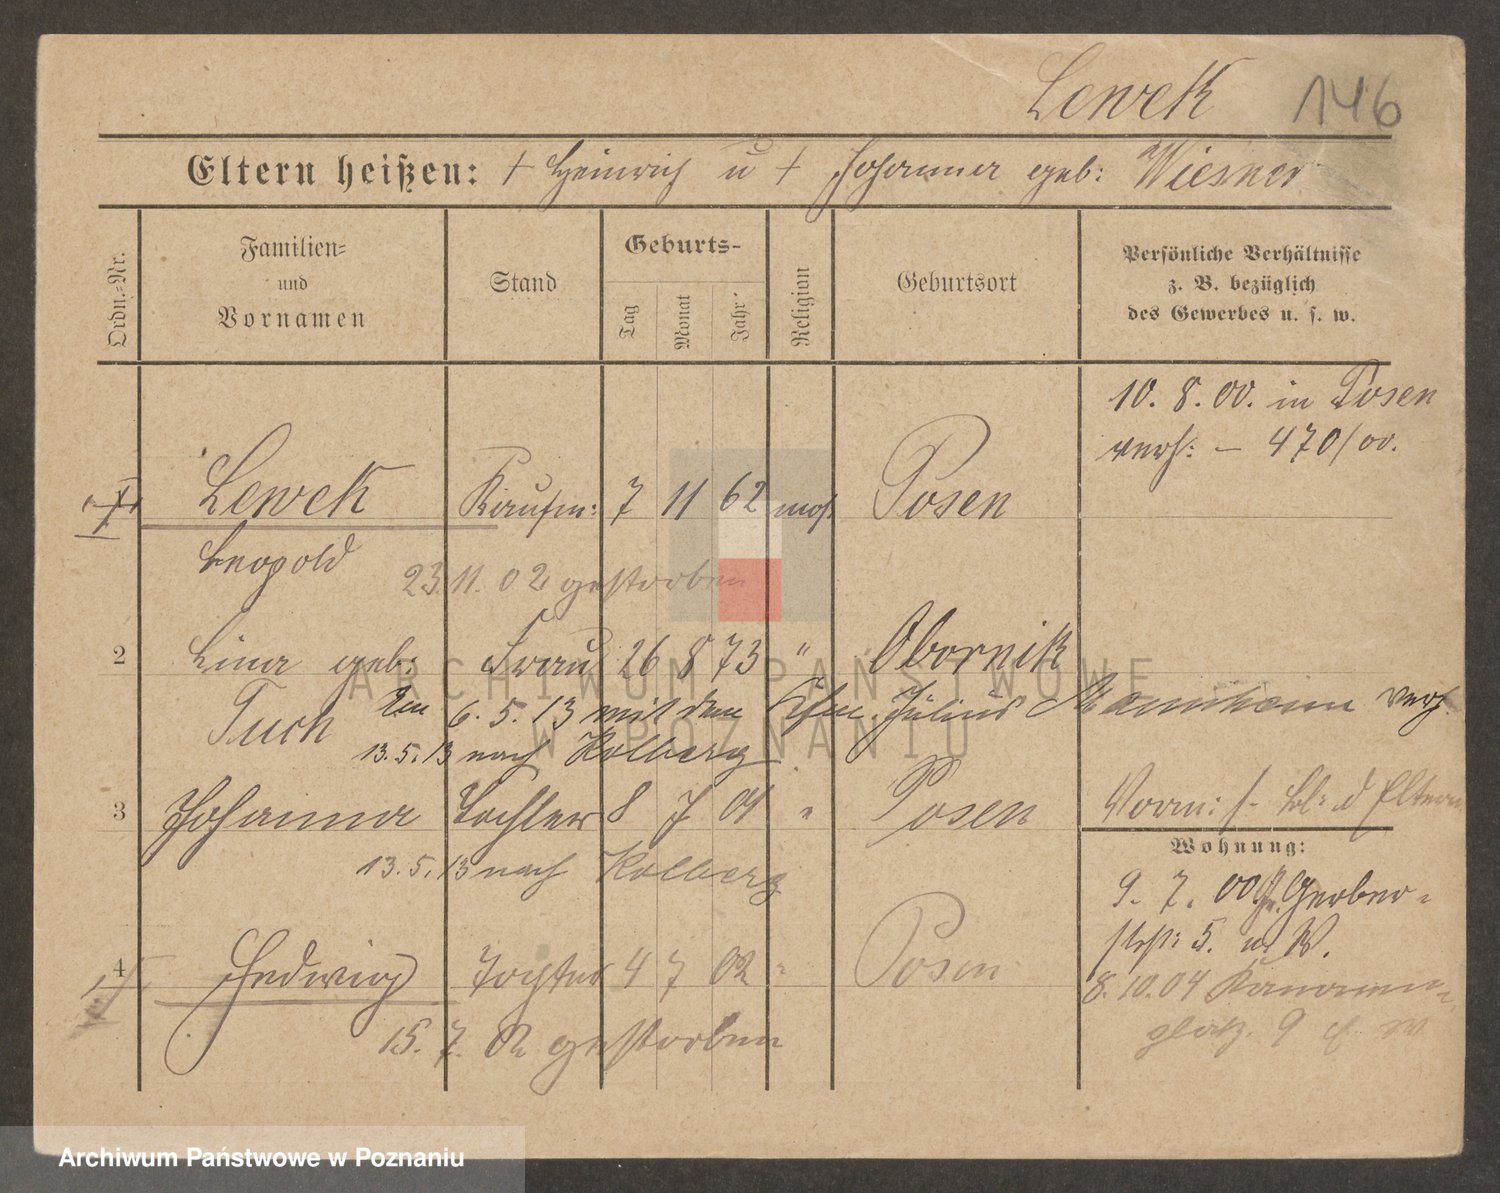 Lewek 146
Eltern heißen: + Heinrich u + Johanna geb: Wiesner
Ordn.-Nr.
Familien-
und
Vornamen
Stand
Geburts-
Tag
Monat
Jahr
Religion
Geburtsort
Persönliche Verhältnisse
z. B. bezüglich
des Gewerbes u. s. w.
10. 8. 00. in Posen
verh: – 470/00.
1 Lewek Kaufm: 7 11 62 mos. Posen
Leopold
23. 11. 02 gestorben
2 Lina geb: Frau 26 8 73 " Obornik
Tuch Am 6. 5. 13 mit dem Kfm. Julius Mannheim verh.
13. 5. 13 nach Kolberg
3 Johanna Tochter 8 7 01 " Posen
13. 5. 13 nach Kolberg
Vorm: d Eltern
Wohnung:
9. 7. 00 Gerber-
str: 5. u W.
8. 10. 04 Kanonen-
platz. 9 W
4 Hedwig Tochter 4 7 02 " Posen
15. 7. 02 gestorben
ARCHIWUM PAŃSTWOWE
W POZNANIU
Archiwum Państwowe w Poznaniu